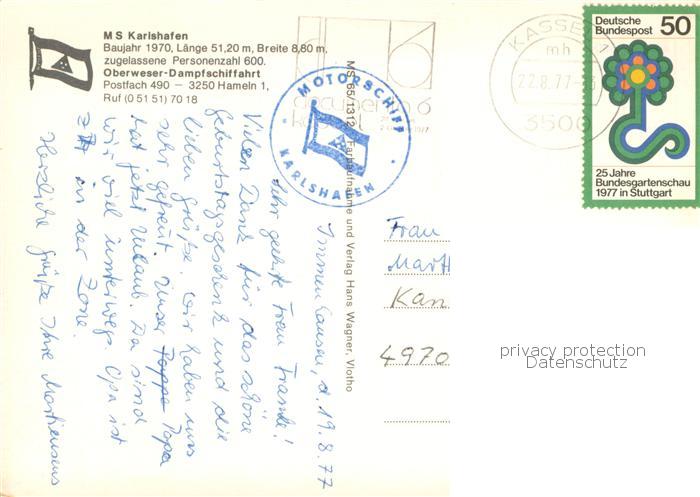 MS Karlshafen
Baujahr 1970, Länge 51,20 m, Breite 8,80 m,
zugelassene Personenzahl 600.
Oberweser-Dampfschiffahrt
Postfach 490 – 3250 Hameln 1,
Ruf (0 51 51) 70 18
MOTORSCHIFF
KARLSHAFEN
documenta 6
KASSEL 1
mh
22.8.77
3500
Deutsche
Bundespost 50
25 Jahre
Bundesgartenschau
1977 in Stuttgart
MS 65/1312 Farbaufnahme und Verlag Hans Wagner, Vlotho
Immenhausen, d. 19.8.77
Sehr geehrte Frau Franke!
Vielen Dank für das schöne
Geburtstagsgeschenk und die
lieben Grüße. Wir haben uns
sehr gefreut. Unser Pappa Papa
hat jetzt Urlaub. Da sind
wir viel unterwegs. Opa ist
z.Zt. in der Zone.
Herzliche Grüße Ihre Martiensens
Frau
Marth
Kan
4970
privacy protection
Datenschutz